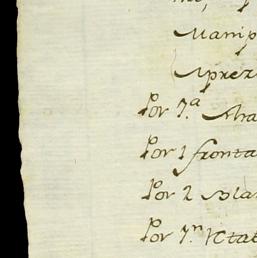 Manip
Aprez
Por 1ª. Alra
Por 1 fronta
Por 2 Bla
Por 1.